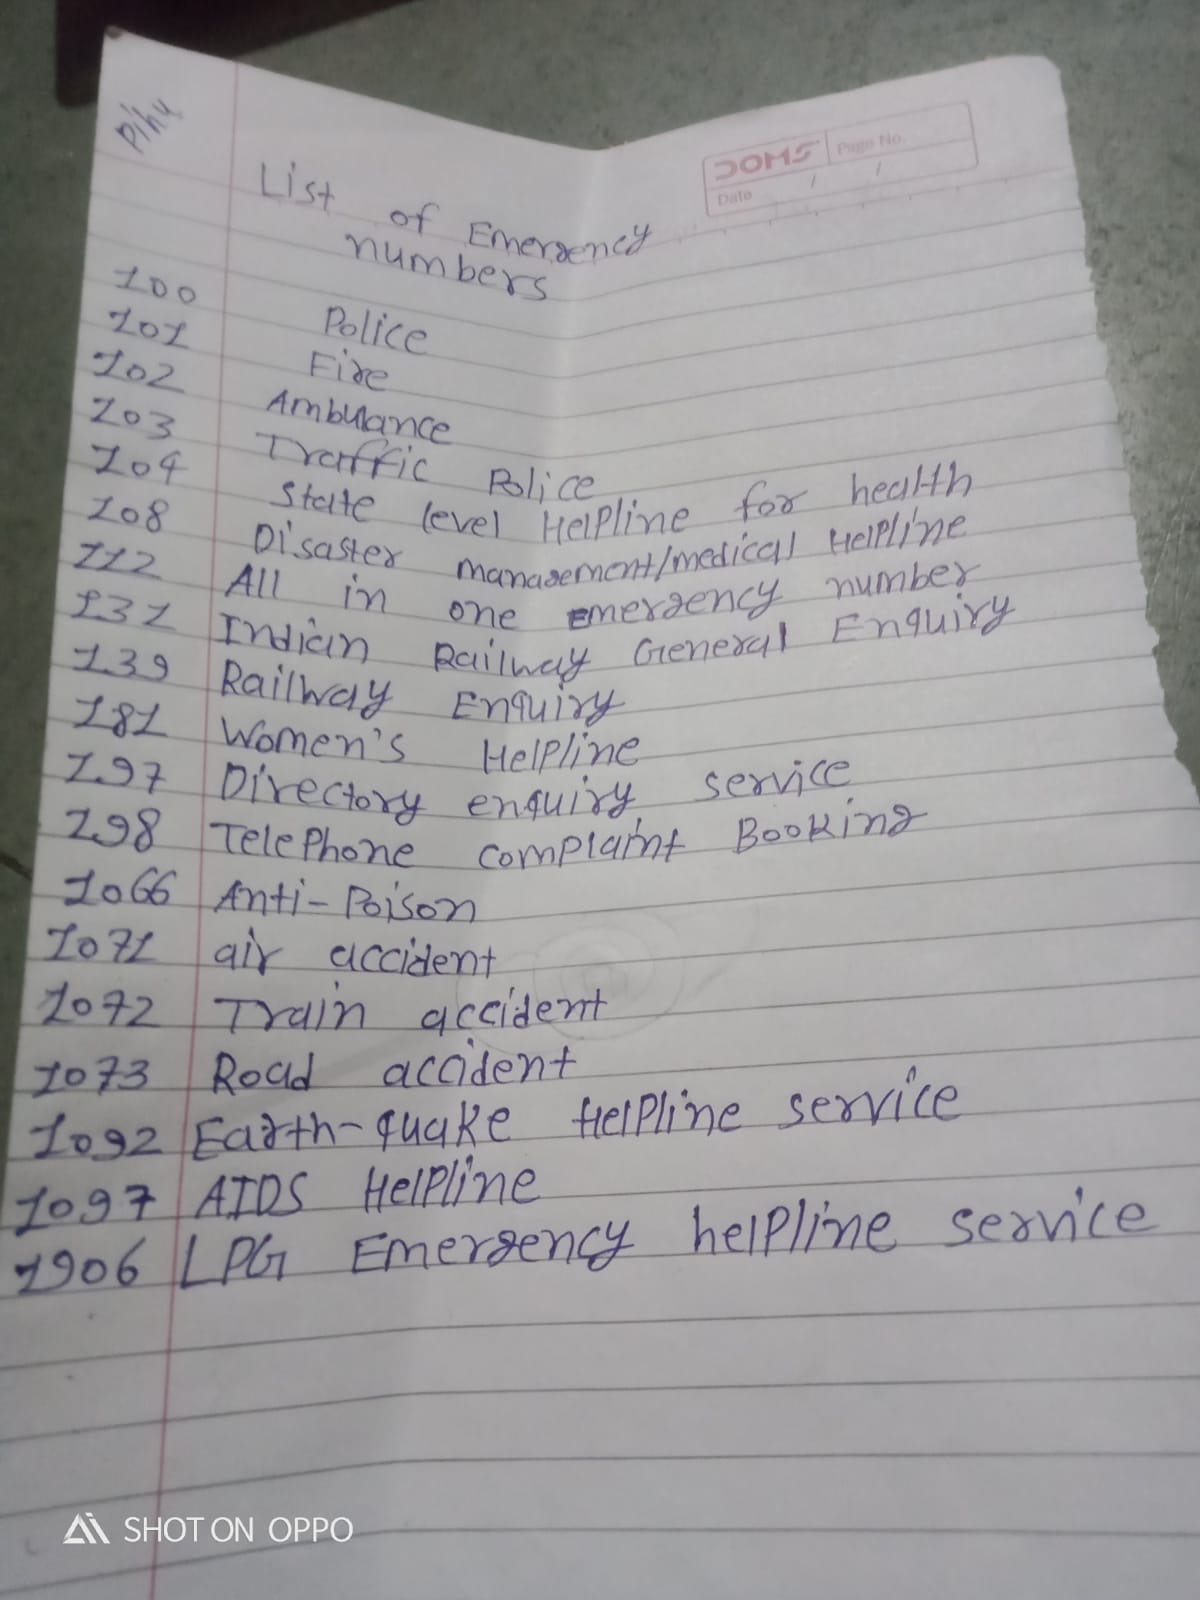 Pihu
DOMS
Page No.
Date / /
List of Emergency
numbers
100 Police
101 Fire
102 Ambulance
103 Traffic Police
104 State level Helpline for health
108 Disaster management/medical Helpline
112 All in one emergency number
131 Indian Railway General Enquiry
139 Railway Enquiry
181 Women's Helpline
197 Directory enquiry service
198 Telephone complaint Booking
1066 Anti-Poison
1071 air accident
1072 Train accident
1073 Road accident
1092 Earth-quake Helpline service
1097 AIDS Helpline
1906 LPG Emergency helpline service
SHOT ON OPPO